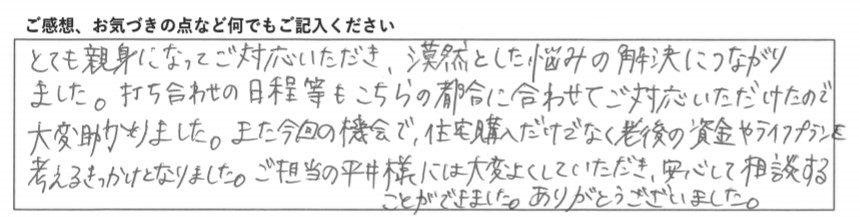 ご感想、お気づきの点など何でもご記入ください
とても親身になってご対応いただき、漠然とした悩みの解決につながり
ました。打ち合わせの日程等もこちらの都合に合わせてご対応いただけたので
大変助かりました。また今回の機会で、住宅購入だけでなく老後の資金やライフプランを
考えるきっかけとなりました。ご担当の平井様には大変よくしていただき、安心して相談する
ことができました。ありがとうございました。